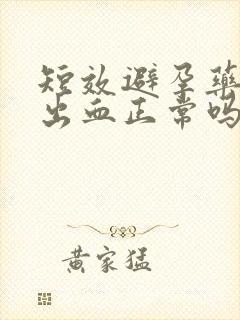 短效避孕药
出血正常吗
黄家猛